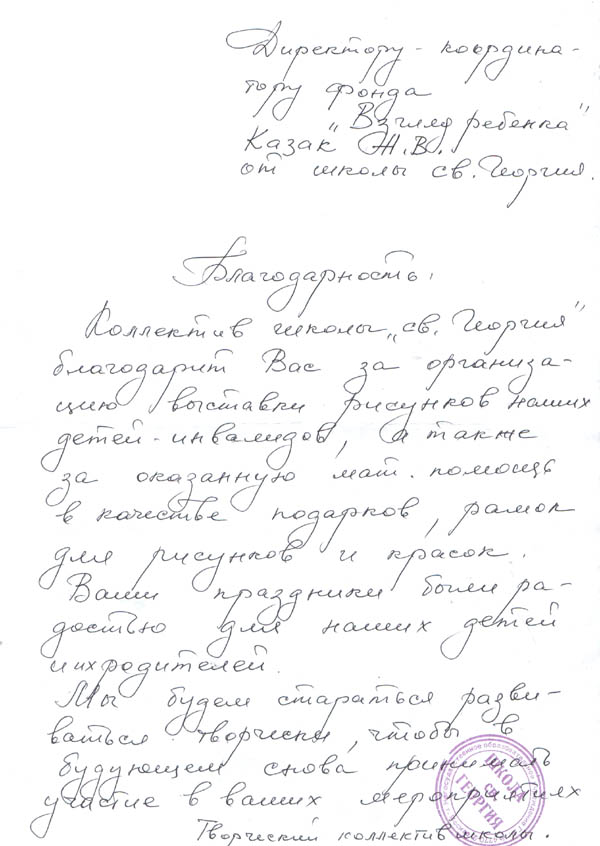 Директору - координа-
тору фонда
"Взгляд ребенка"
Казак Ж.В.
от школы св. Георгия.
Благодарность.
Коллектив школы "св. Георгия"
благодарит Вас за организа-
цию выставки рисунков наших
детей-инвалидов, а также
за оказанную мат. помощь
в качестве подарков, рамок
для рисунков и красок.
Ваши праздники были ра-
достью для наших детей
и их родителей.
Мы будем стараться разви-
ваться творчески, чтобы в
будующем снова принимать
участие в ваших мероприятиях
Творческий коллектив школы.
ШКОЛА
СВ.
ГЕОРГИЯ